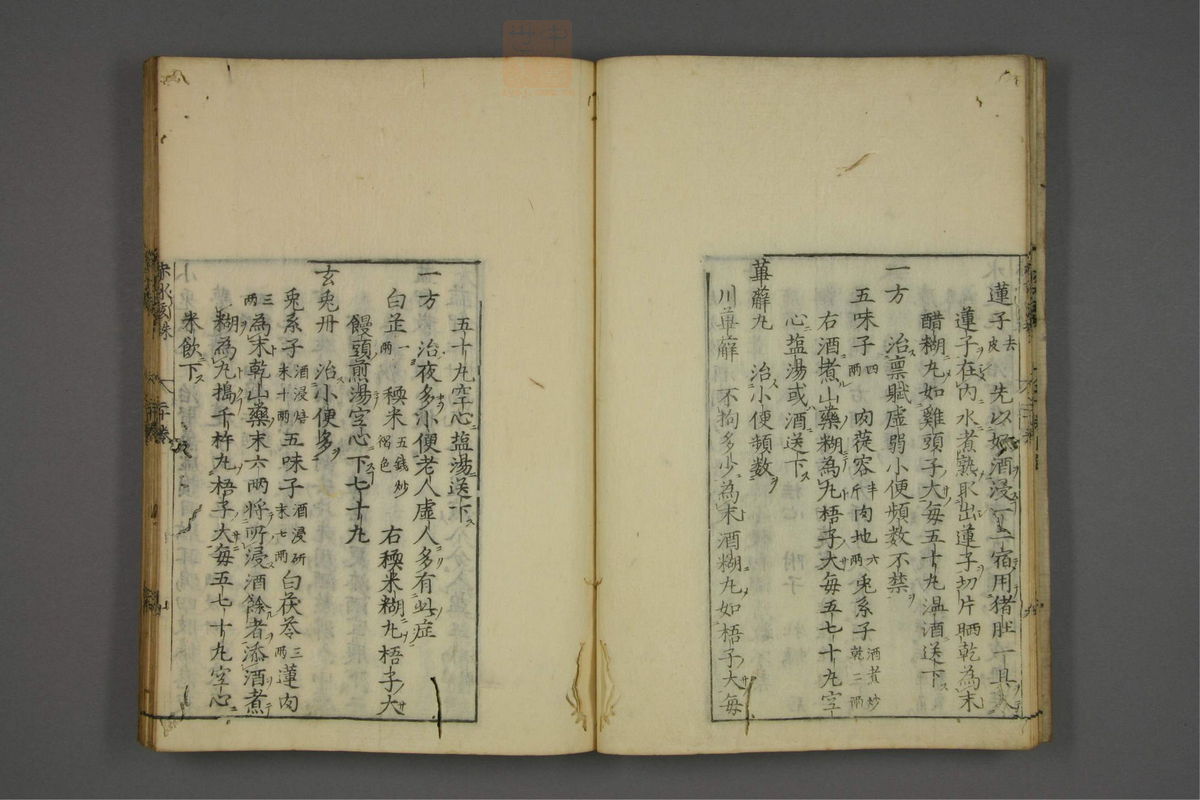 蓮子去皮先以好酒浸一二宿用猪肚一具
蓮子在內水煮熟取出蓮子切片晒乾為末
醋糊丸如雞頭子大每五十丸温酒送下
一方 治禀賦虛弱小便頻数不禁
五味子四兩 肉蓯容半斤 肉地六兩 兎糸子酒煮炒乾二兩
右酒煮山藥糊為丸梧子大每五七十丸空
心塩湯或酒送下
萆薢丸 治小便頻数
川萆薢 不拘多少為末酒糊丸如梧子大每
五十丸空心塩湯送下
一方 治夜多小便老人虛人多有此症
白芷一兩 稬米五錢炒褐色 右稬米糊丸梧子大
饅頭煎湯空心下七十丸
玄兎丹 治小便多
兎糸子酒浸焙末十兩 五味子酒浸研末七兩 白茯苓三兩 蓮肉
三兩為末乾山藥末六兩將所浸酒餘者添酒煮
糊為丸搗千杵丸梧子大每五七十丸空心
米飲下
赤水玄珠